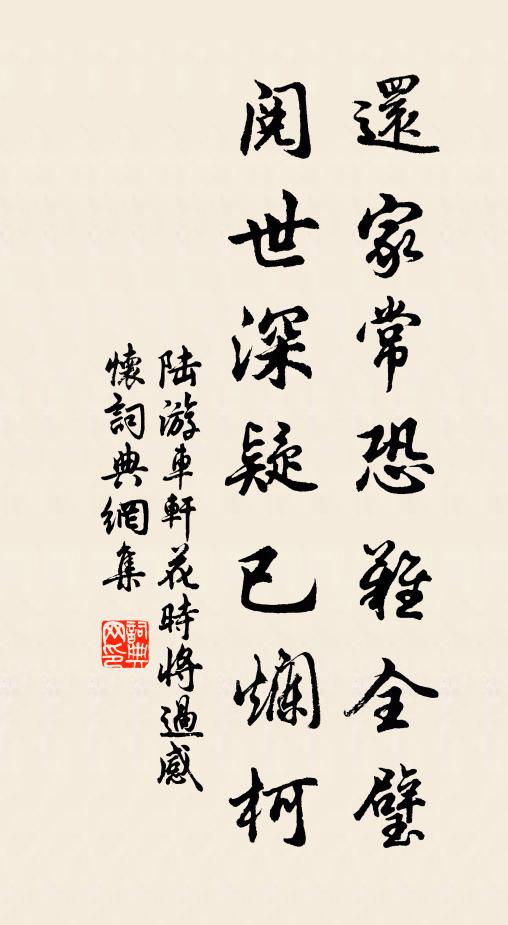 還家常恐難全璧
閱世深疑已爛柯
陸游車軒花時將過感
懷詞典網集
詞典
网印